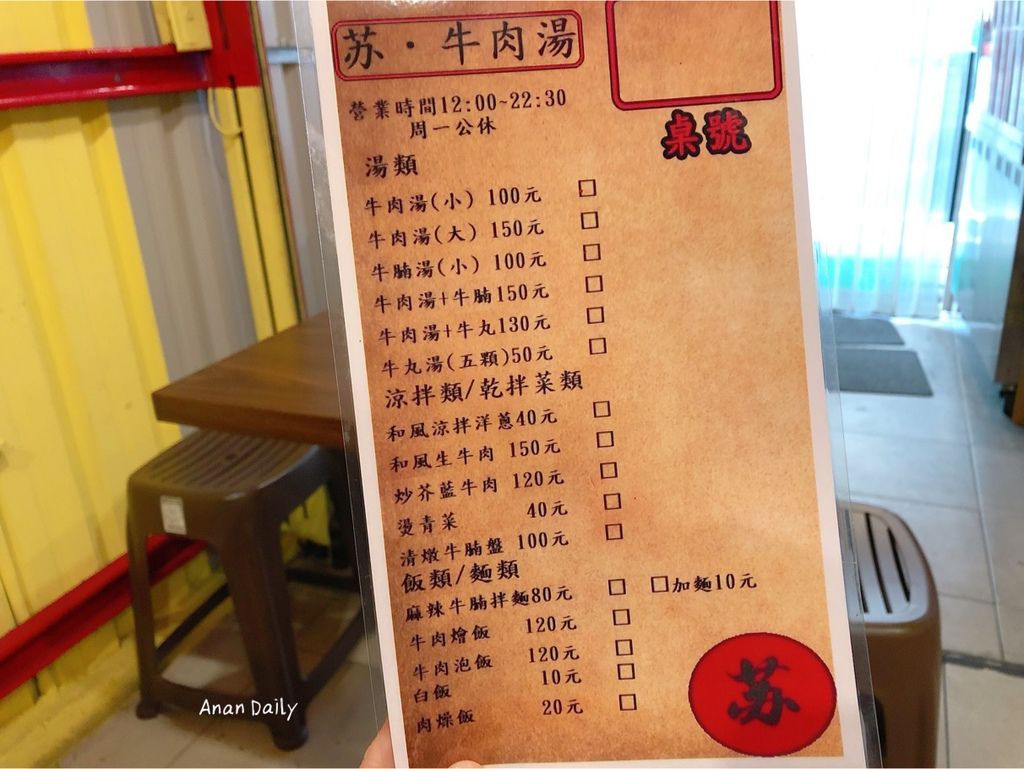 苏·牛肉湯
營業時間12:00~22:30
周一公休
桌號
湯類
牛肉湯(小) 100元 □
牛肉湯(大) 150元 □
牛腩湯(小) 100元 □
牛肉湯+牛腩150元 □
牛肉湯+牛丸130元 □
牛丸湯(五顆)50元 □
涼拌類/乾拌菜類
和風涼拌洋蔥40元 □
和風生牛肉 150元 □
炒芥藍牛肉 120元 □
燙青菜 40元 □
清燉牛腩盤 100元 □
飯類/麵類
麻辣牛腩拌麵80元 □ □加麵10元
牛肉燴飯 120元 □
牛肉泡飯 120元 □
白飯 10元 □
肉燥飯 20元 □
苏
Anan Daily